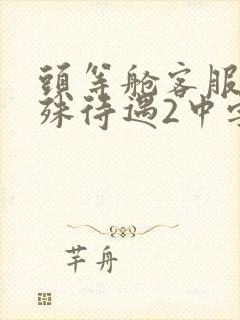 頭等舱客服
殊待遇2中字
芊舟